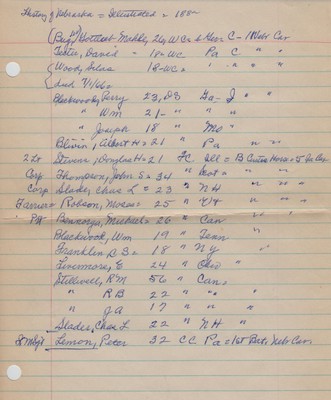 History of Nebraska = Illustrated = 1882
(Bug) Gottlieb Mahle, 21, W Co & Ger C - 1 Nebr Cav
Fester, David - 18 = W C Pa C " "
(Woods, Silas 18 - W C = " - " "
(died 7/1/62
Blackwood, Perry 23, DS Ga - J " "
" Wm 21 - " " "
" Joseph 18 " Mo " "
Blivin, Albert H = 21 " Pa " "
2 Lt Stevens, Douglas H = 21 FC Ill = B Curtis Horse = 5 Ia Cav
Corp Thompson, John S = 34 " Scot = " " "
Corp Slader, Chas L = 23 " NH " " "
Farrier = Robson, Moses = 25 " " " "
Pvt Michael = 26 = Can " "
Blackwood, Wm 19 " Tenn "
Franklin = 18 " NY "
Livermore, E 24 " Ohio "
Stillwell, R M 56 " Can "
" R B 22 " " "
" J A 17 " " "
Slader, Chas L 22 " NH "
Lemon, Peter 32 CC Pa = 1st Bat. Nebr Cav